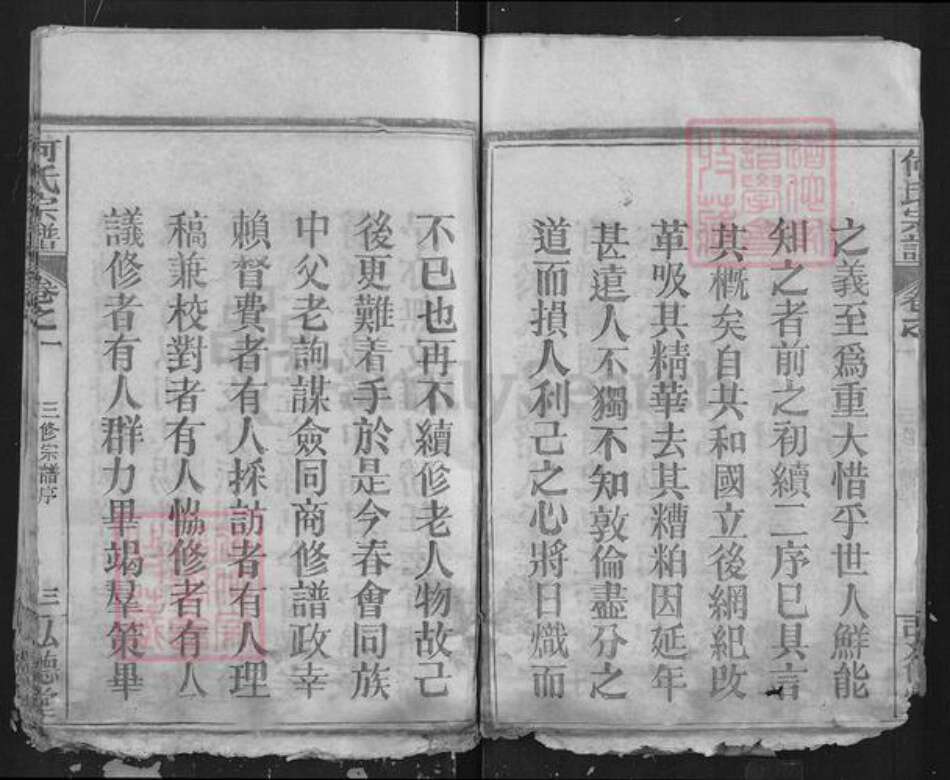 之義至爲重大惜乎世人鮮能
知之者前之初續二序已具言
其概矣自共和國立後網紀改
革吸其精華去其糟粕因延年
甚遠人不獨不知敦倫盡分之
道而損人利己之心將日熾而
不已也再不續修老人物故己
後更難着手於是今春會同族
中父老詢謀僉同商修譜政幸
賴督費者有人採訪者有人理
稿兼校對者有人恊修者有人
議修者有人群力畢竭羣策畢
何氏宗譜
卷之一
三修宗譜序
三
弘德堂
何氏宗譜